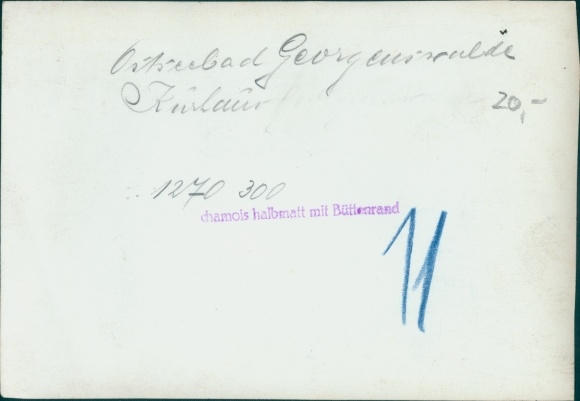 Ostseebad Georgenswalde
Kurhaus
20,-
1270 300
chamois halbmatt mit Büttenrand
11